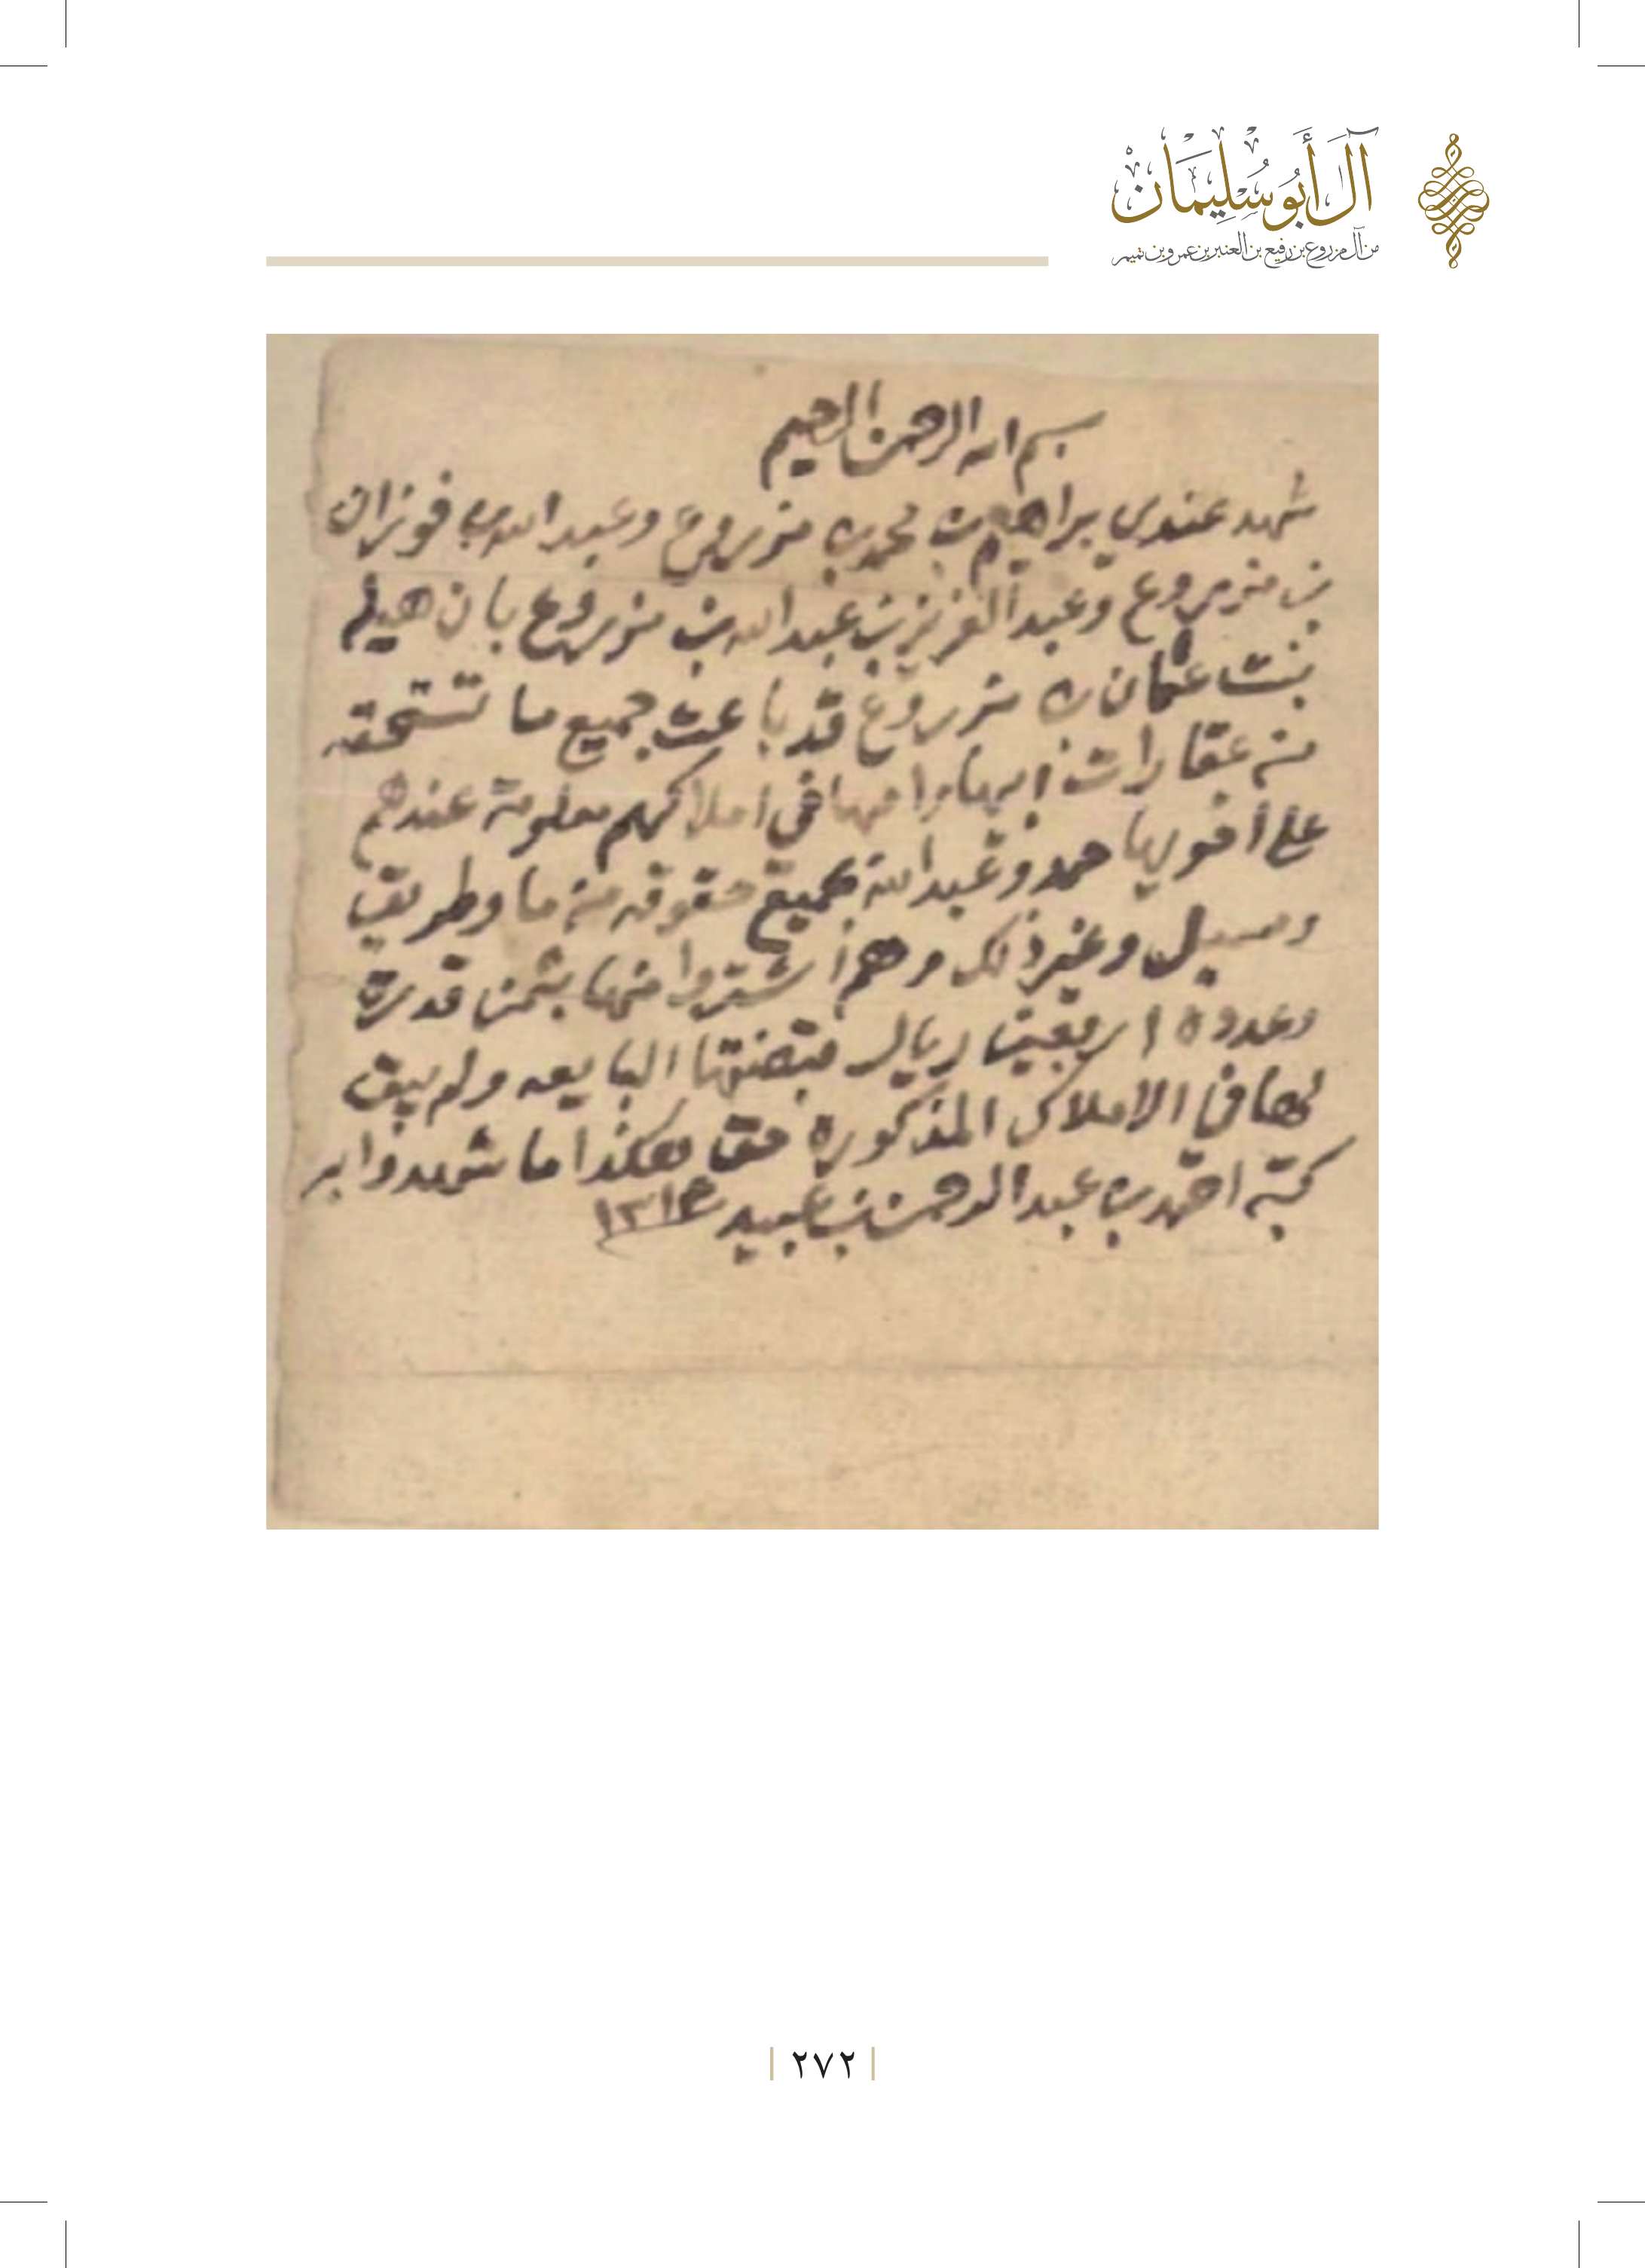 آل أبو سليمان
من آل مزروع بن رفيع بن العنبر بن عمرو بن تميم
بسم الله الرحمن الرحيم
شهد عندي براهيم بن محمد بن مزروع وعبد الله بن فوزان
بن مزروع وعبد العزيز بن عبد الله بن مزروع بان هيلم
بنت عثمان بن مزروع قد باعت جميع ما تستحقه
من عقارات ابيها وامها في املاكهم معلومة عندهم
على أخويها حمد وعبد الله بجميع حقوقه من ما وطريق
ومسيل وغير ذلك وهم أشتروا منها بثمن قدره
وعدده اربعين ريال قبضتها البايعه ولم يبق
لها في الاملاك المذكورة حق هكذا ما شهدوا به
كتبه احمد بن عبد الرحمن بن عبيد
٢٧٢